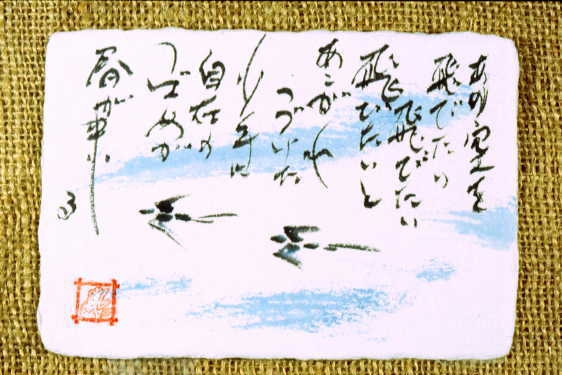 あの空を
飛びたい
飛びたい
飛びたいと
あこがれ
つづけた
少年は
自在
つばめが